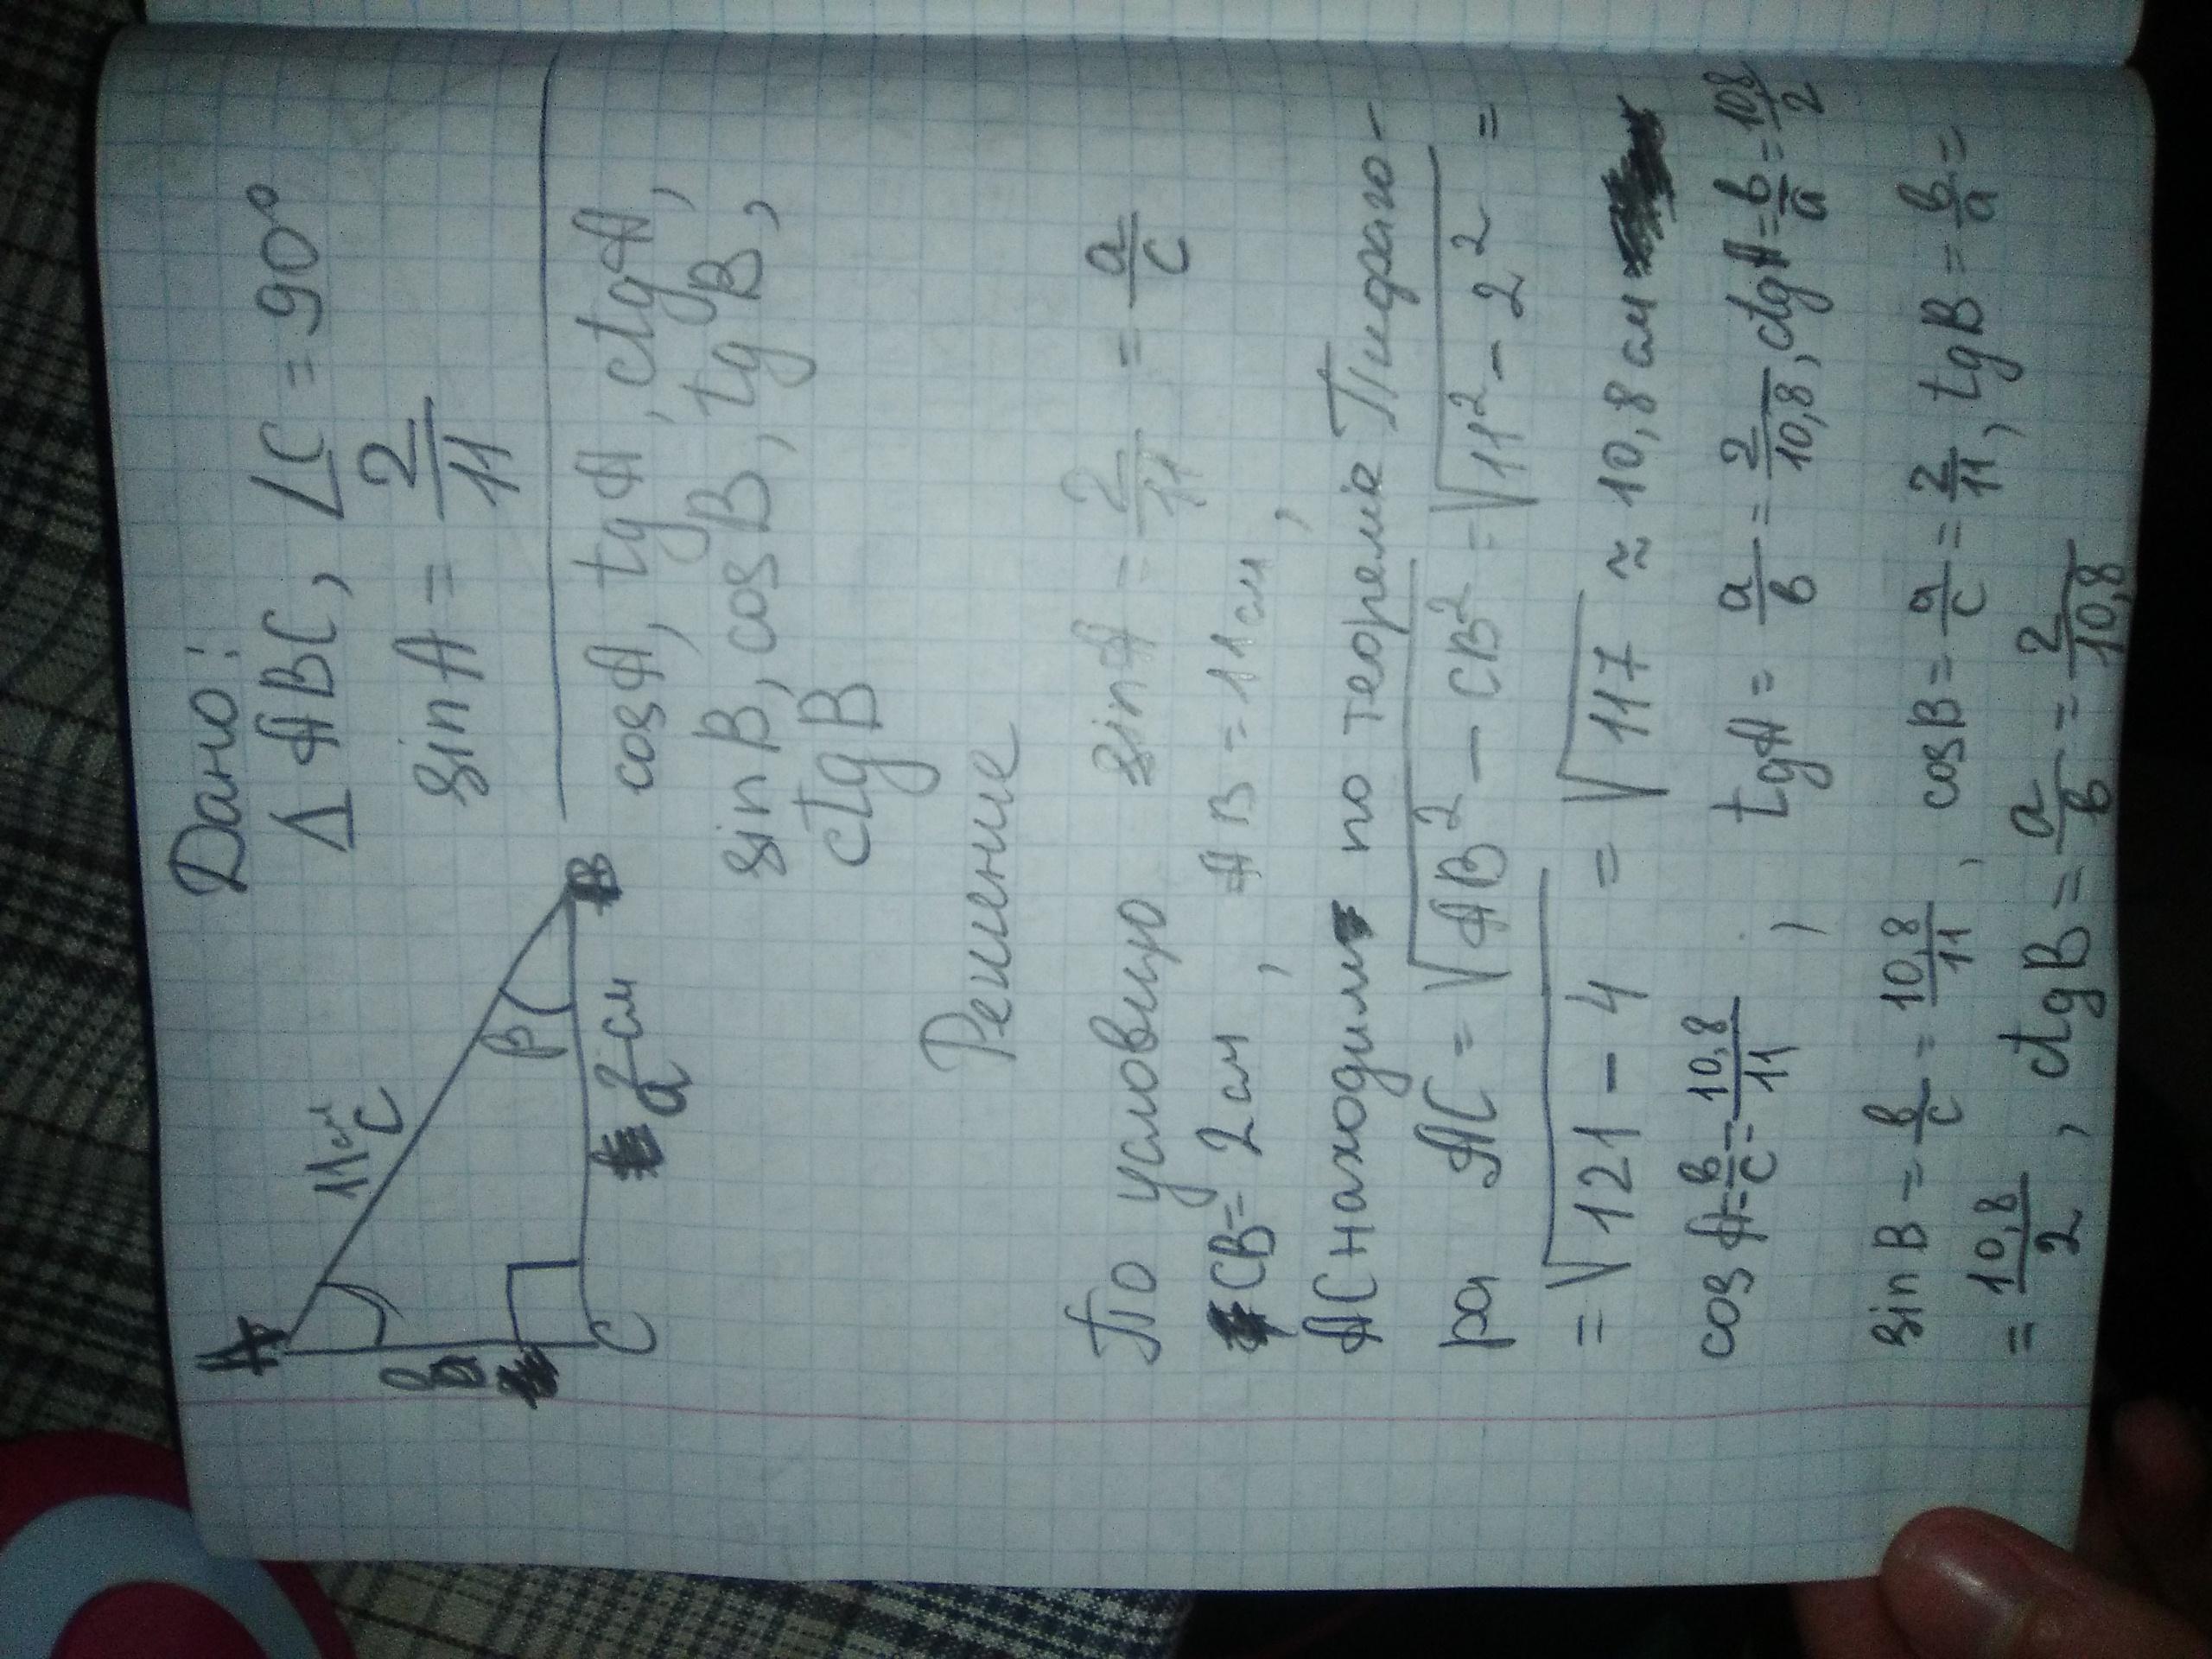 Дано:
Δ ABC, ∠C = 90°
sin A = 2/11
cos A, tg A, ctg A,
sin B, cos B, tg B,
ctg B
A
11 см
c
b
β
B
C
2 см
a
Решение
По условию sin A = 2/11 = a/c
CB = 2 см, AB = 11 см,
AC находим по теореме Пифаго-
ра AC = √AB² - CB² = √11² - 2² =
= √121 - 4 = √117 ≈ 10,8 см
cos A = b/c = 10,8/11, tg A = a/b = 2/10,8, ctg A = b/a = 10,8/2
sin B = b/c = 10,8/11, cos B = a/c = 2/11, tg B = b/a =
= 10,8/2, ctg B = a/b = 2/10,8